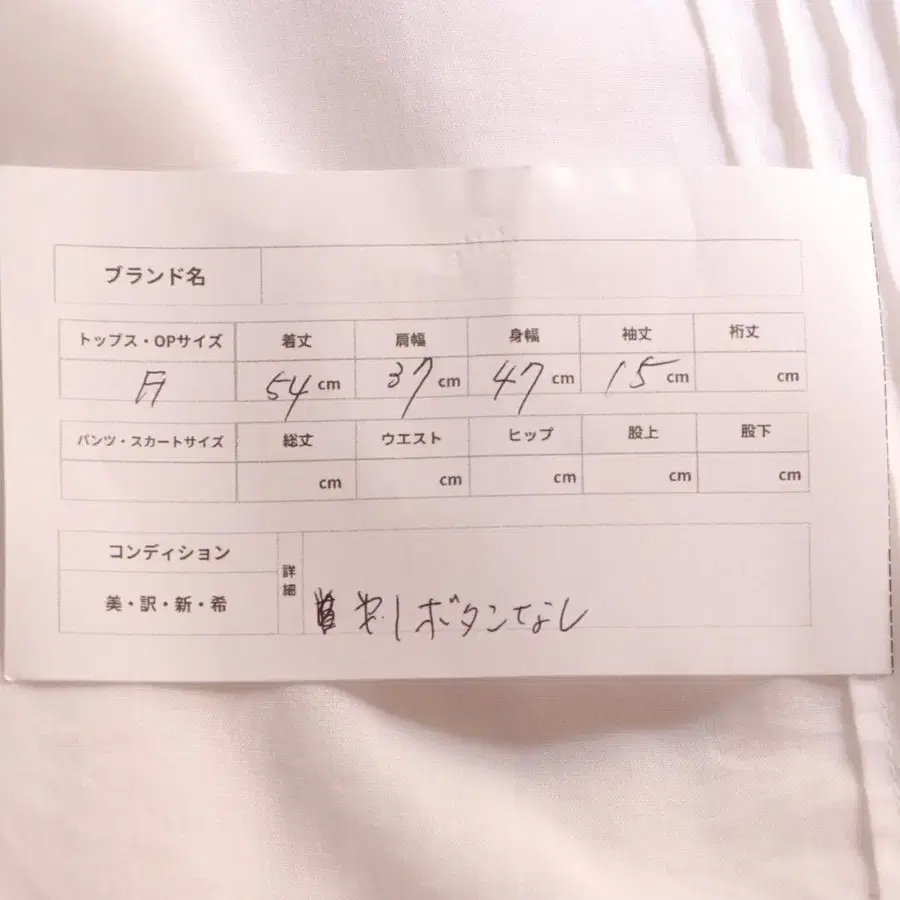 ブランド名
トップス・OPサイズ 着丈 肩幅 身幅 袖丈 裄丈
54 cm 37 cm 47 cm 15 cm cm
パンツ・スカートサイズ 総丈 ウエスト ヒップ 股上 股下
cm cm cm cm cm
コンディション
詳細
美・訳・新・希
ボタンなし